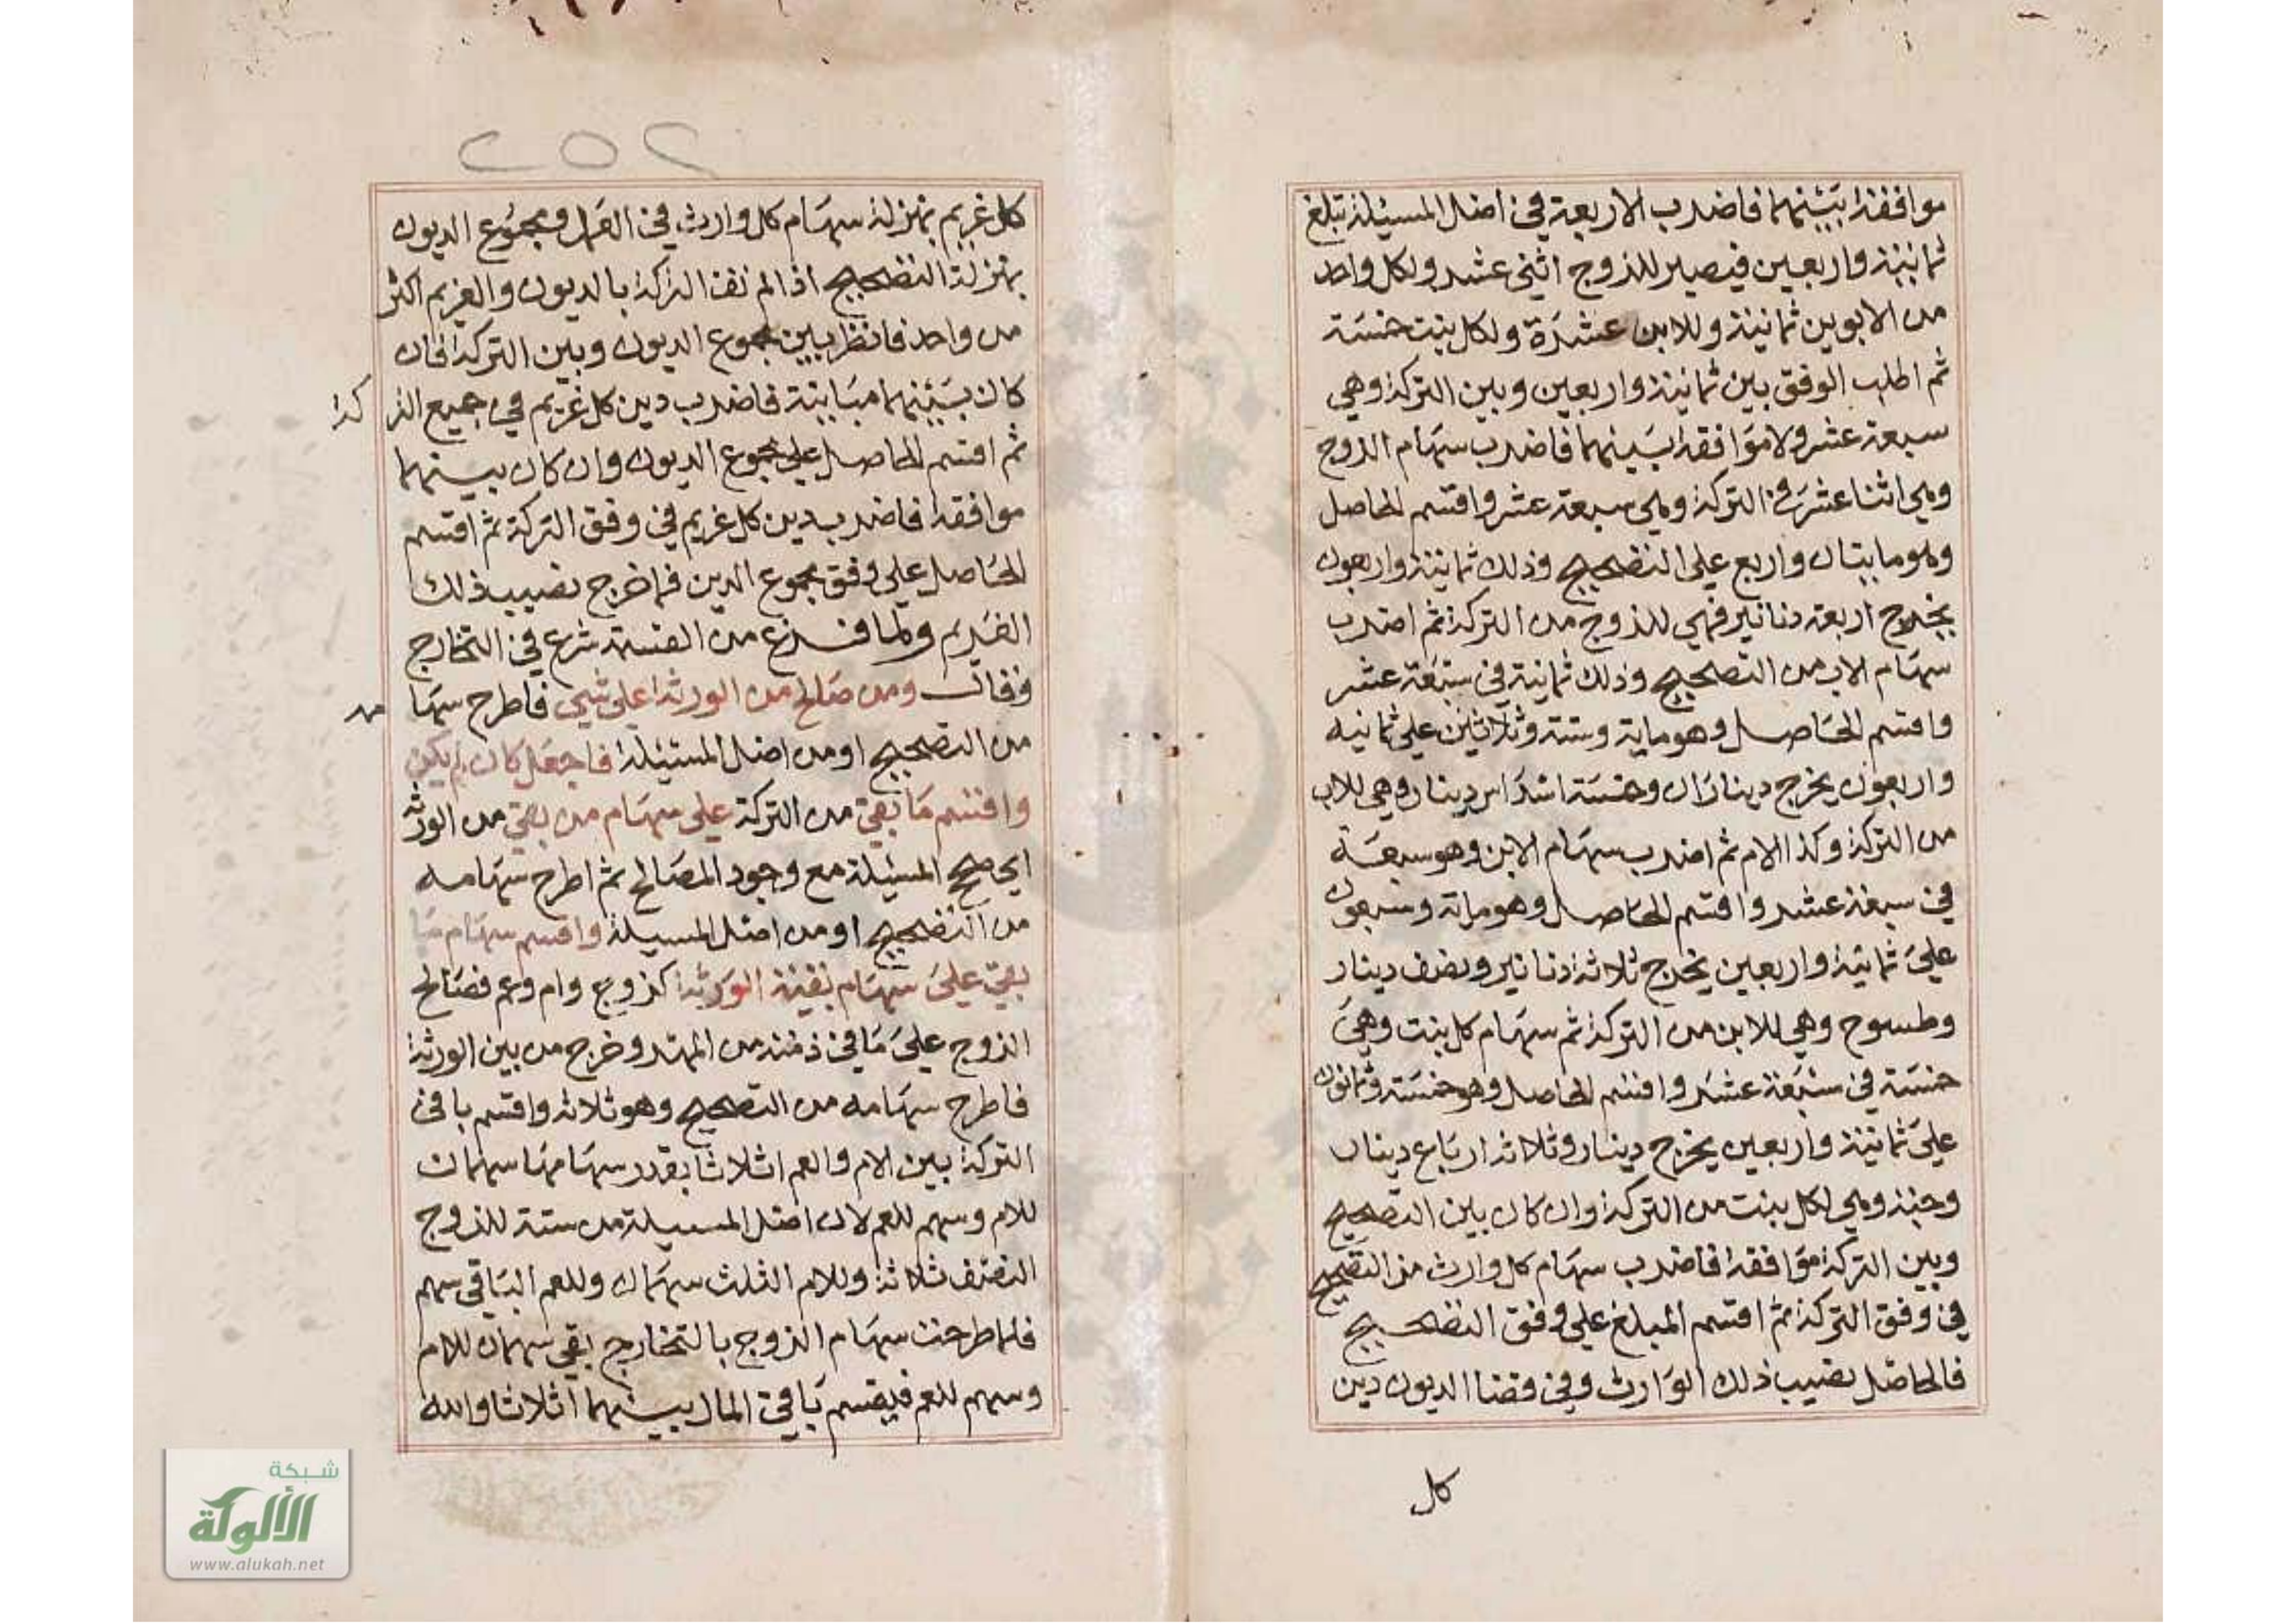 موافقة بينهما فاضرب الاربعة في اصل المسئلة تبلغ
ثمانية واربعين فيصير للزوج اثنى عشر ولكل واحد
من الابوين ثمانية وللابن عشرة ولكل بنت خمسة
ثم اطلب الوفق بين ثمانية واربعين وبين التركة وهي
سبعة عشر ولا موافقة بينهما فاضرب سهام الزوج
وهي اثنا عشر في التركة وهي سبعة عشر واقسم الحاصل
وهو مايتان واربع على التصحيح وذلك ثمانية واربعون
يخرج اربعة دنانير فهي للزوج من التركة ثم اضرب
سهام الاب من التصحيح وذلك ثمانية في سبعة عشر
واقسم الحاصل وهو ماية وستة وثلاثين على ثمانيه
واربعون يخرج ديناران وخمسة اسداس دينار وهي للاب
من التركة وكذا الام ثم اضرب سهام الابن وهو سبعة
في سبعة عشر واقسم الحاصل وهو ماية وسبعون
على ثمانية واربعين يخرج ثلاثة دنانير ونصف دينار
وطسوج وهي للابن من التركة ثم سهام كل بنت وهي
خمسة في سبعة عشر واقسم الحاصل وهو خمسة وثمانون
على ثمانية واربعين يخرج دينار وثلاثة ارباع دينار
وحبة وهي لكل بنت من التركة وان كان بين التصحيح
وبين التركة موافقة فاضرب سهام كل وارث من التصحيح
في وفق التركة ثم اقسم المبلغ على وفق التصحيح
فالحاصل نصيب ذلك الوارث وفي قضا الديون دين
كل
٢٥٢
كل غريم بمنزلة سهام كل وارث في العمل ومجموع الديون
بمنزلة التصحيح اذا لم تف التركة بالديون والغريم اكثر
من واحد فانظر بين مجموع الديون وبين التركة فان
كان بينهما مباينة فاضرب دين كل غريم في جميع التر كة
ثم اقسم الحاصل على مجموع الديون وان كان بينهما
موافقة فاضرب دين كل غريم في وفق التركة ثم اقسم
الحاصل على وفق مجموع الدين فما خرج نصيب ذلك
الغريم ولما فرغ من القسمة شرع في التخارج
وقال ومن صالح من الورثة على شي فاطرح سها مه
من التصحيح او من اصل المسئلة فاجعل كان لم يكن
واقسم ما بقي من التركة على سهام من بقي من الورثة
اي صحح المسئلة مع وجود المصالح ثم اطرح سهامه
من التصحيح او من اصل المسيلة واقسم سهام ما
بقي على سهام بقية الورثة كزوج وام وعم فصالح
الزوج على ما في ذمته من المهر وخرج من بين الورثة
فاطرح سهامه من التصحيح وهو ثلاثة واقسم باقى
التركة بين الام والعم اثلاثا بقدر سهامها سهمان
للام وسهم للعم لان اصل المسيلة من ستة للزوج
النصف ثلاثة وللام الثلث سهمان وللعم الباقي سهم
فلما طرحت سهام الزوج بالتخارج بقي سهمان للام
وسهم للعم فيقسم باقي المال بينهما اثلاثا والله
شبكة
الألوكة
www.alukah.net